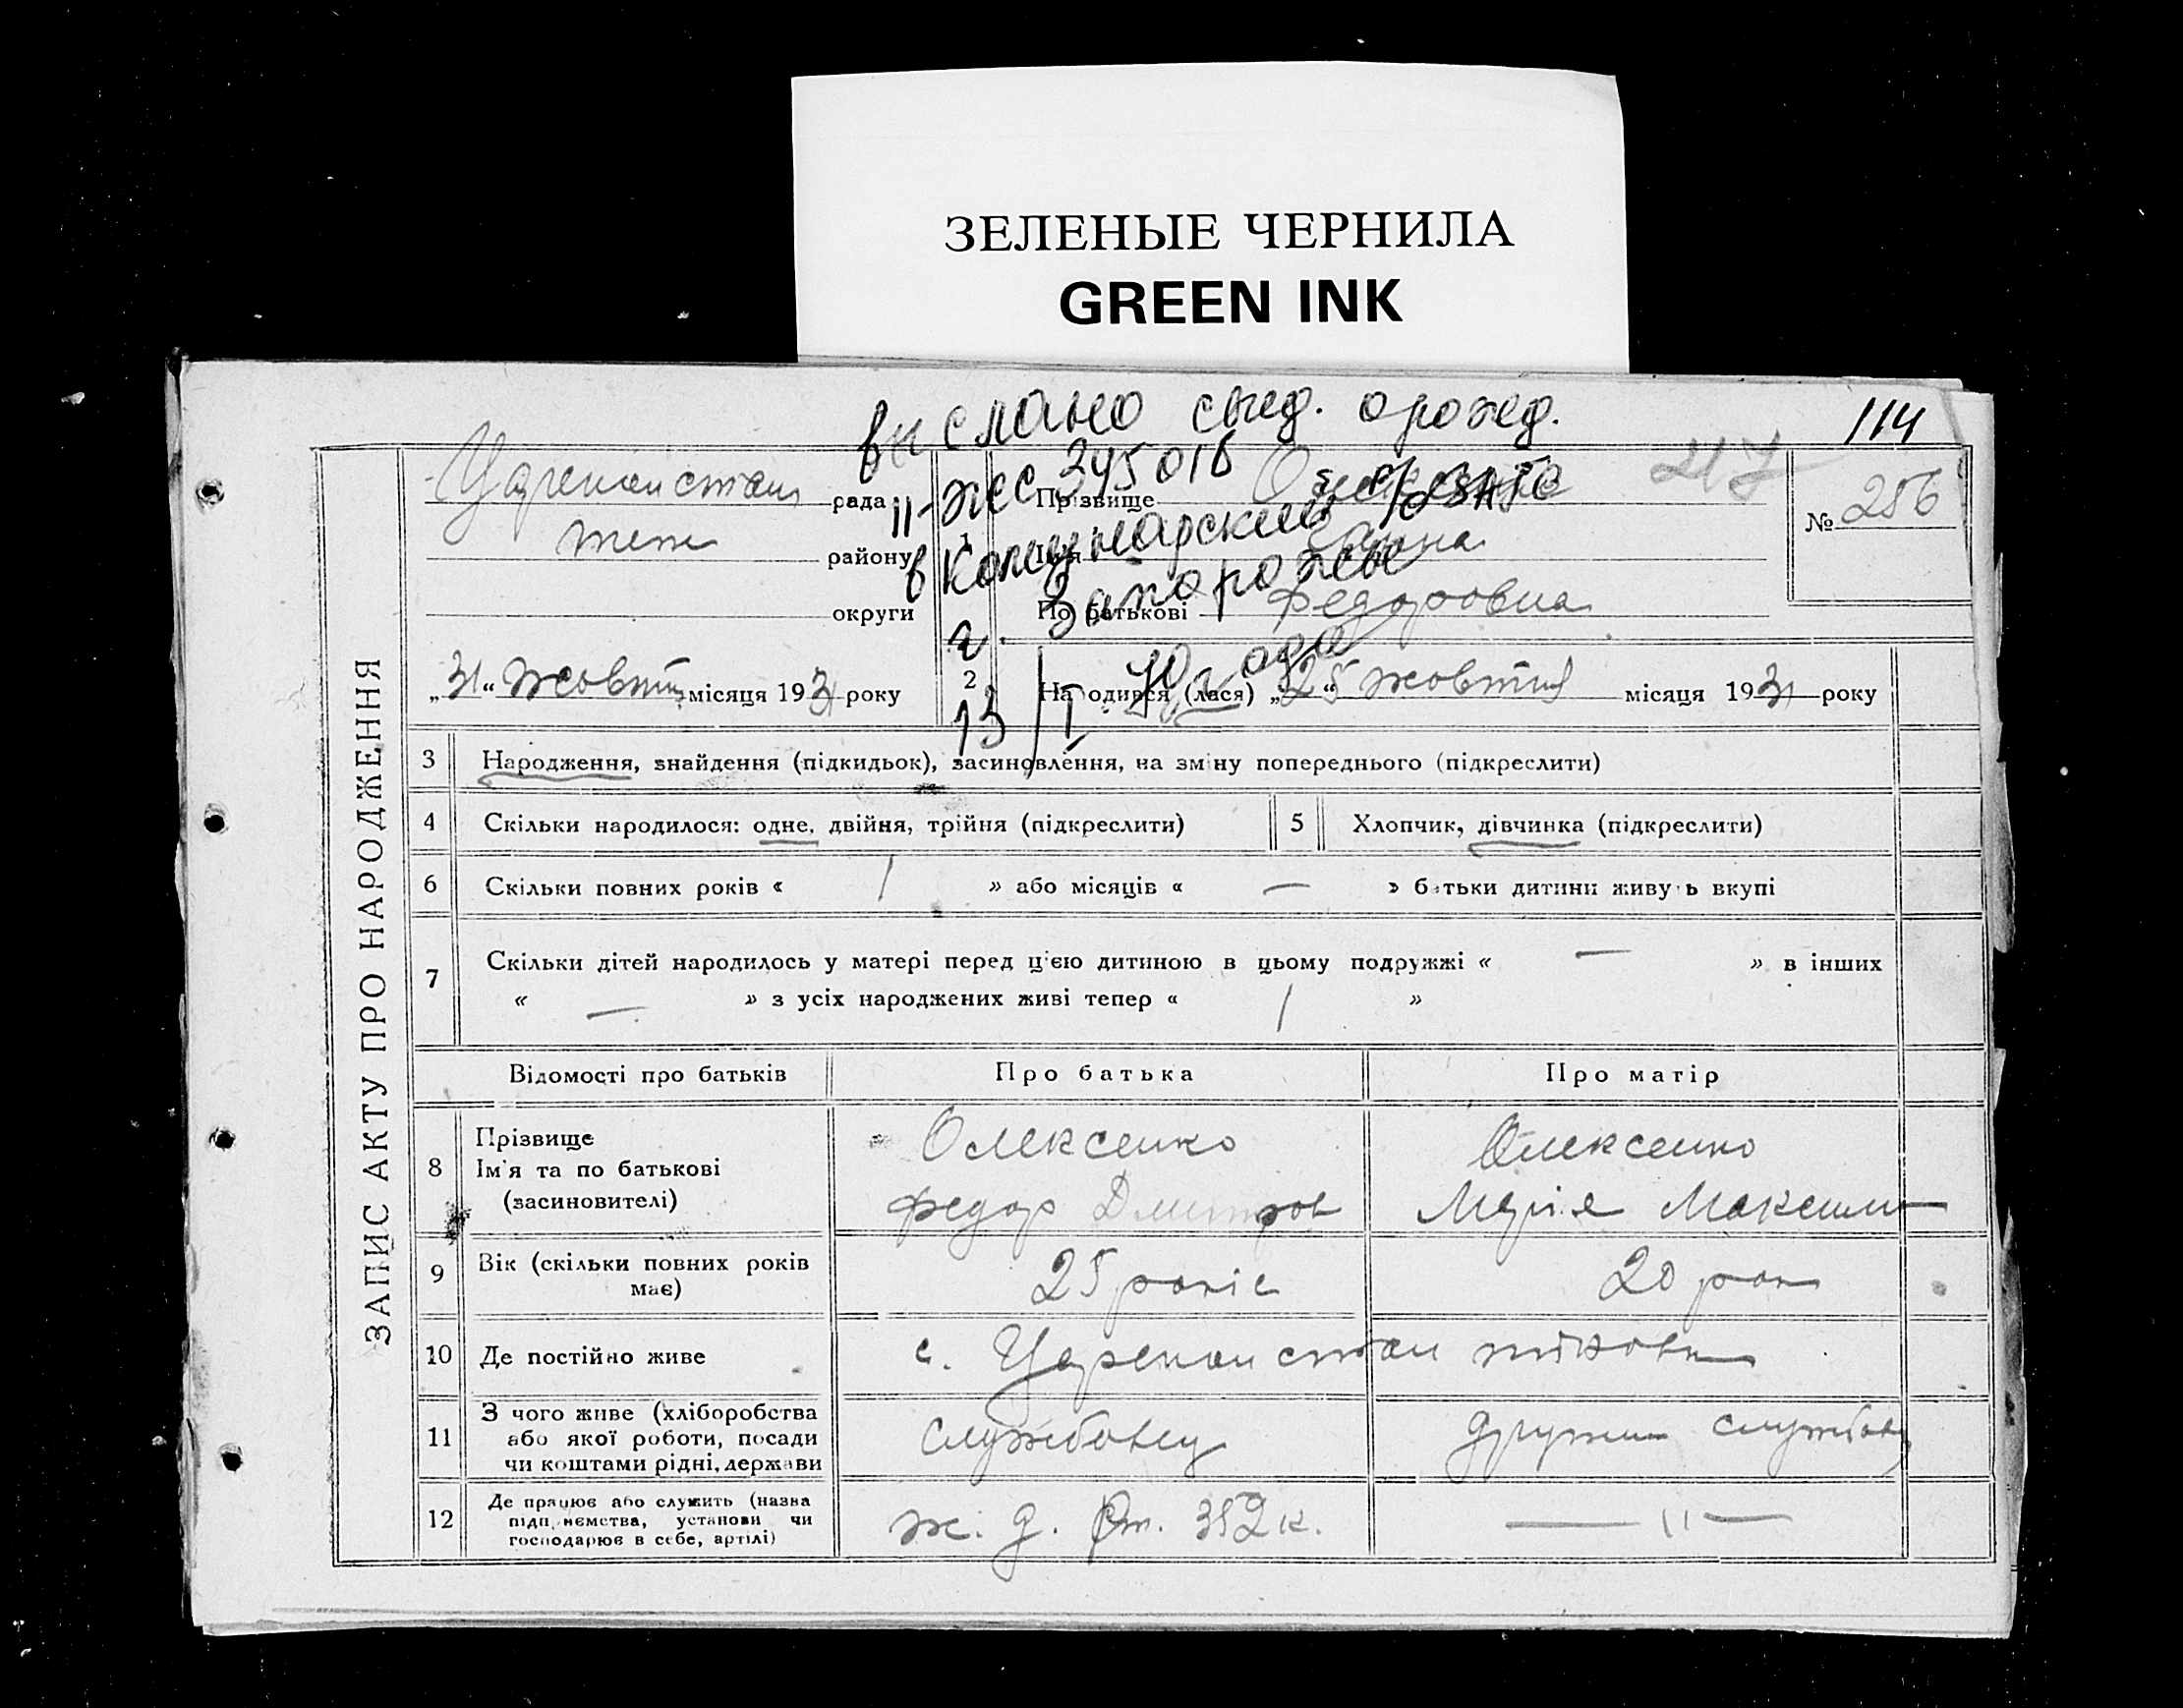 ЗЕЛЕНЫЕ ЧЕРНИЛА
GREEN INK
114
вислано свид. о рожд.
II-ЖС 395016
в Коммунарский р/ЗАГС
г. Запорожье
13/I 70 года
ЗАПИС АКТУ ПРО НАРОДЖЕННЯ
рада
району
округи
„31“ жовтня місяця 1931 року
1 Прізвище
Ім'я
По батькові Федоровна
№ 256
2 Народився (лася) „25“ жовтня місяця 1931 року
3 Народження, знайдення (підкидьок), засиновлення, на зміну попереднього (підкреслити)
4 Скільки народилося: одне, двійня, трійня (підкреслити) 5 Хлопчик, дівчинка (підкреслити)
6 Скільки повних років « 1 » або місяців « — » батьки дитини живуть вкупі
7 Скільки дітей народилось у матері перед цією дитиною в цьому подружжі « — » в інших
« — » з усіх народжених живі тепер « 1 »
Відомості про батьків Про батька Про матір
8 Прізвище Олексенко Олексенко
Ім'я та по батькові
(засиновителі) Федор Дмитров Марія Максим
9 Вік (скільки повних років має) 25 років 20 рок
10 Де постійно живе с.
11 З чого живе (хліборобства або якої роботи, посади чи коштами рідні, держави службовец дружина службов
12 Де працює або служить (назва підприємства, установи чи господарює в себе, артілі) ж. д. ст. 352 к. — 11 —